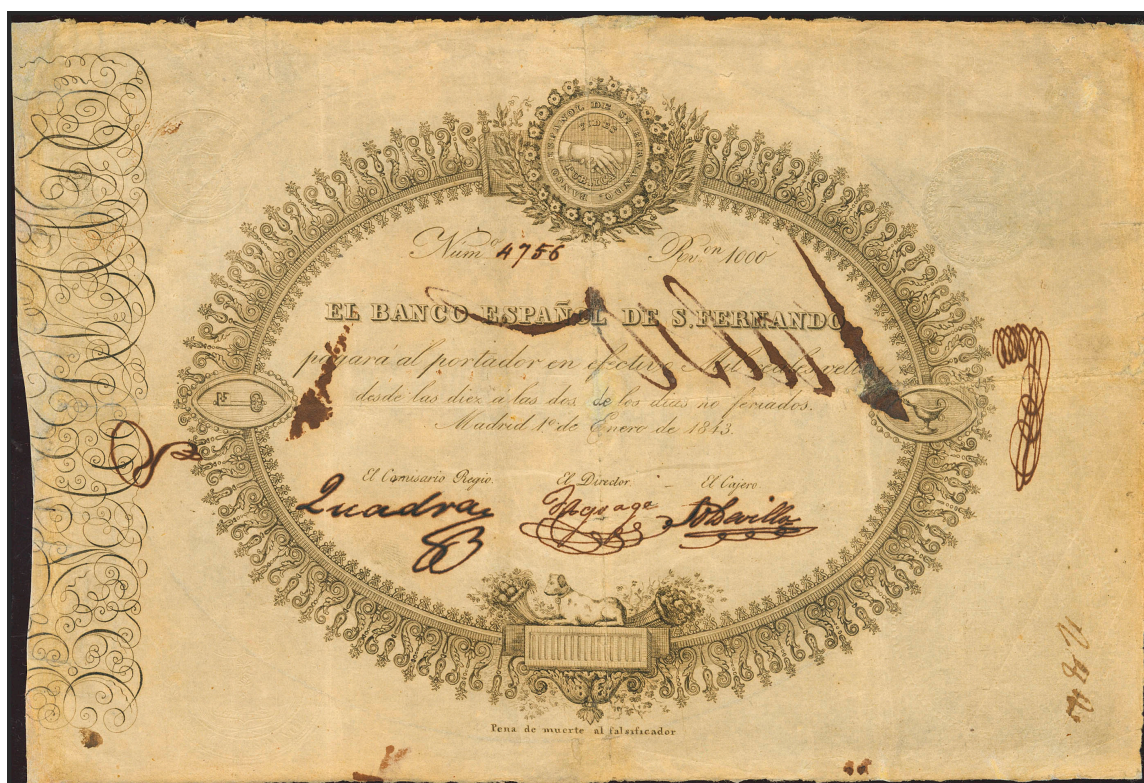 BANCO ESPAÑOL DE S. FERNANDO.
Num.º 4756 R.ˢ v.ᵒⁿ 1000
EL BANCO ESPAÑOL DE S. FERNANDO
pagará al portador en efectivo Mil reales vellon
desde las diez a las dos de los dias no feriados.
Madrid 1º de Enero de 1843.
El Comisario Regio. El Director. El Cajero.
Quadra
Pena de muerte al falsificador